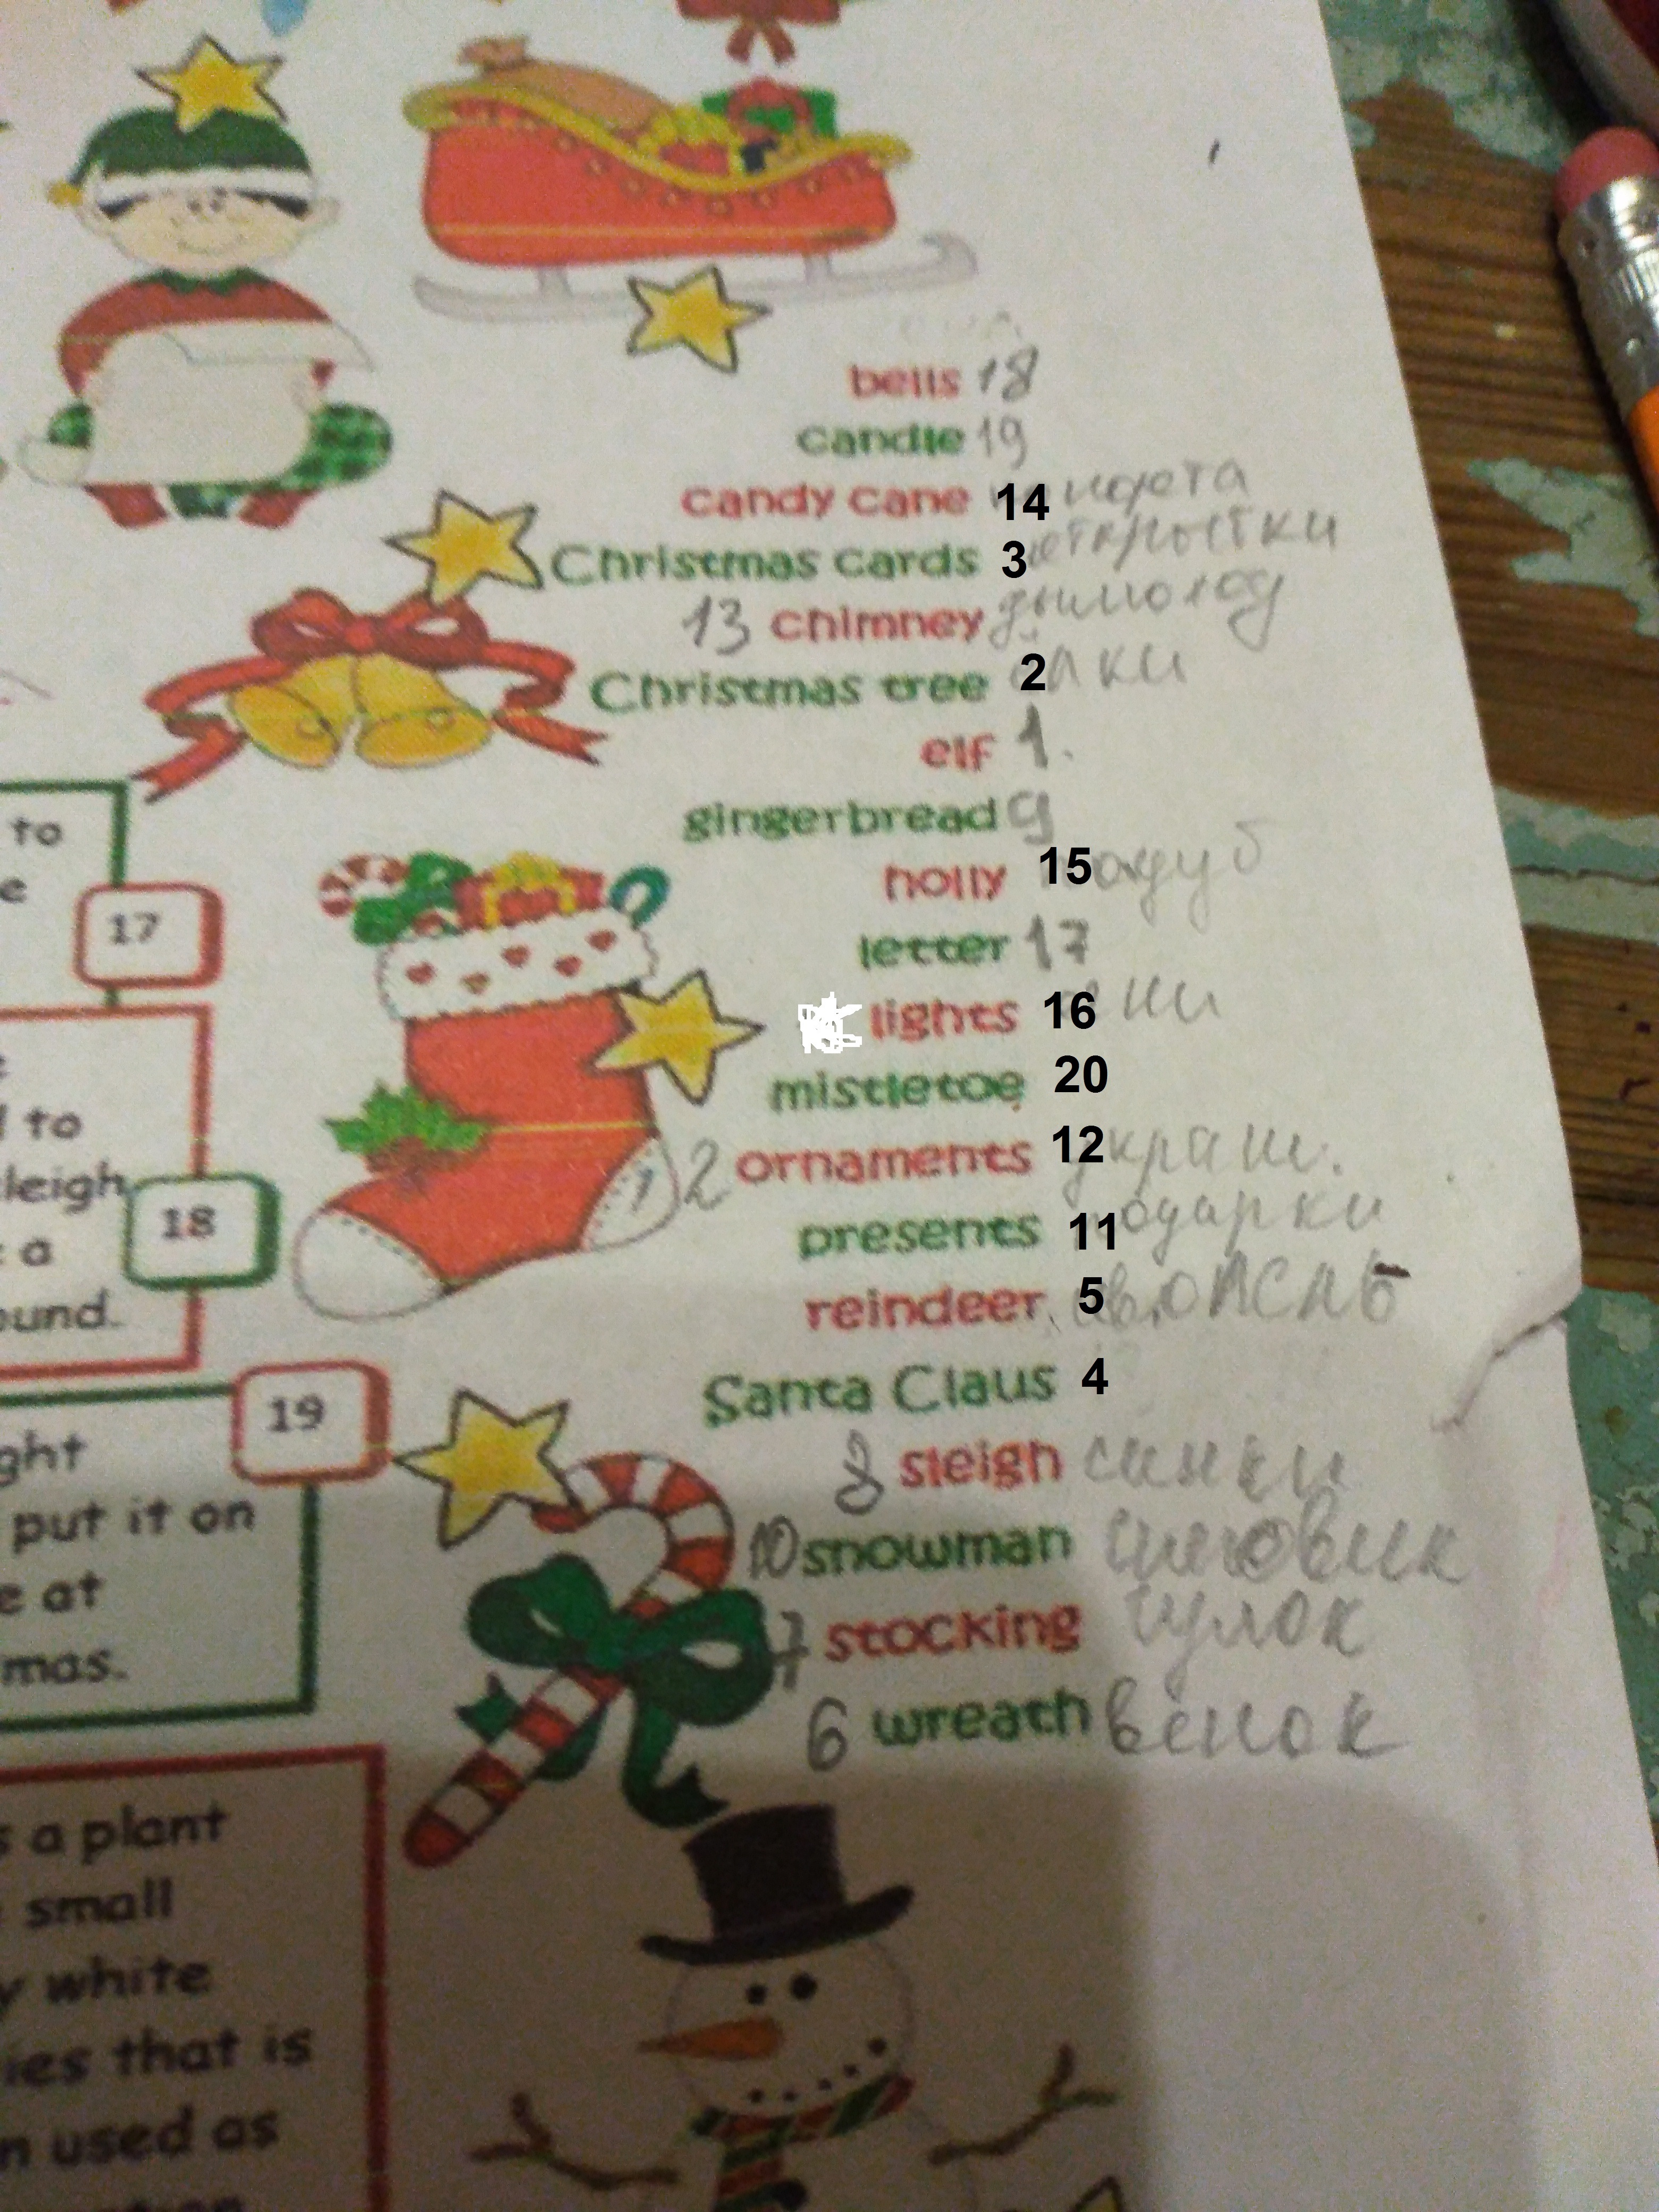 bells 18
candle 19
candy cane 14
Christmas cards 3 открытки
13 chimney дымоход
Christmas tree 2
elf 1.
gingerbread 9
holly 15
letter 17
lights 16
mistletoe 20
2 ornaments 12 украш.
presents 11 подарки
reindeer 5
Santa Claus 4
8 sleigh санки
10 snowman снеговик
7 stocking чулок
6 wreath венок
to
e
17
to
leigh
a
ound.
18
19
ght
put it on
e at
mas.
s a plant
small
y white
ies that is
n used as